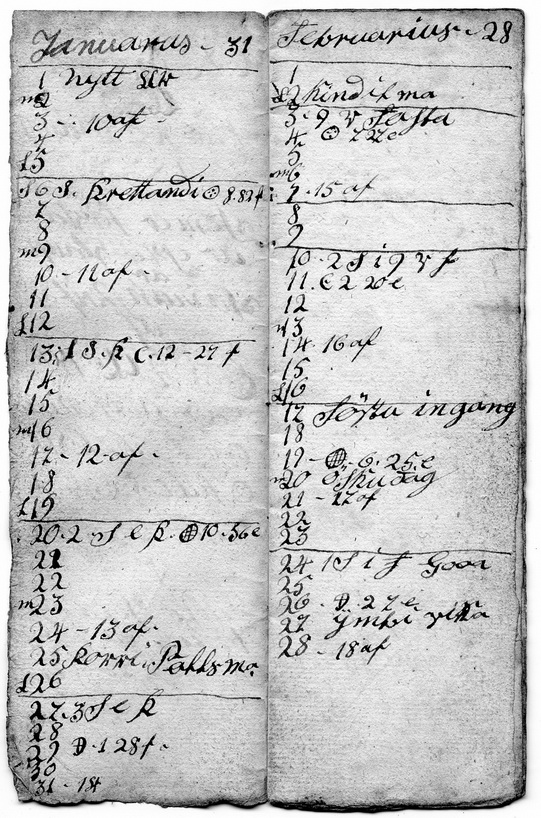 Januarius - 31
1 Nytt
m2
3 - 10 af -
4
L5
S6 S. Krettandi ☉ 8.82 f
7
8
m9
10 - 11 af -
11
L12
13 1 S. K ☾ 12 - 27 f
14
15
m16
17 - 12 af -
18
L19
20 2 S e K. 10 - 56 e
21
22
m23
24 - 13 af -
25 Korri Pálls ma
L26
27 3 S e K
28
29 D 1 28 f -
30
31 - 14
Februarius - 28
1
L2 Kindilma
3 - 9 v fasta
4 ☉ 7 22 e
5
m6
7 - 15 af
8
9
10 - 2 S i 9 v f
11 ☾ 2 20 e
12
13
14 - 16 af
15
L16
17 Fösta ingang
18
19 - 6 - 25 e
m20 Öskudag
21 - 17 af
22
23
24 1 S i f Goa
25
26 - D. 2 7 e
27 ymbi vika
28 - 18 af